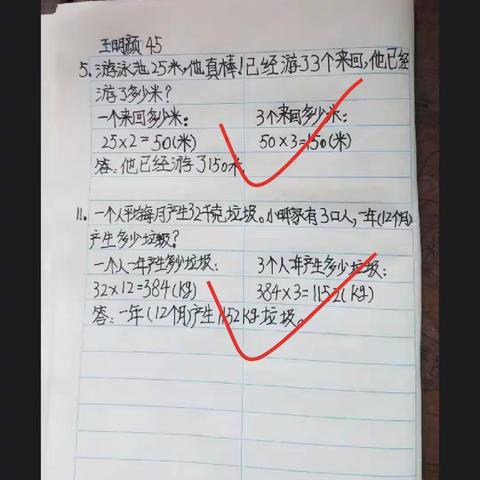 王明颢 45
5. 游泳池25米,他真棒!已经游了3个来回,他已经
游了多少米?
一个来回多少米: 3个来回多少米:
25×2=50(米) 50×3=150(米)
答:他已经游了150米.
11. 一个人平均每月产生32千克垃圾。小明家有3口人,一年(12个月)
产生多少垃圾?
一个人一年产生多少垃圾: 3个人一年产生多少垃圾:
32×12=384(kg) 384×3=1152(kg)
答:一年(12个月)产生1152kg垃圾。